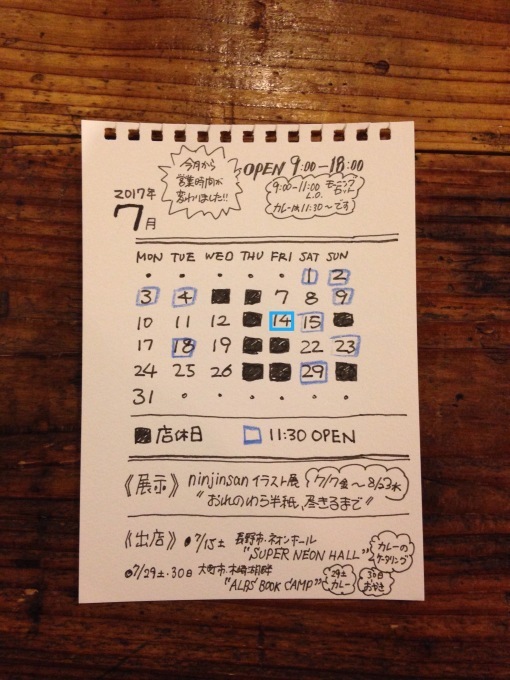 今月から
営業時間が
変わりました!!
OPEN 9:00-18:00
9:00-11:00 モーニング
L.O.
カレーは11:30〜です
2017年
7月
MON TUE WED THU FRI SAT SUN
• • • • • 1 2
3 4 ■ ■ 7 8 9
10 11 12 ■ 14 15 ■
17 18 19 ■ ■ 22 23
24 25 26 ■ ■ 29 ■
31 • • • • • •
■ 店休日 □ 11:30 OPEN
《展示》 ninjinsan イラスト展 7/7金〜8/23水
"おれのわら半紙、尽きるまで"
《出店》 • 7/15土 長野市・ネオンホール
"SUPER NEON HALL" カレーの
ケータリング
• 7/29土・30日 大町市、木崎湖畔
"ALPS BOOK CAMP" 29土
カレー
30日
おやき